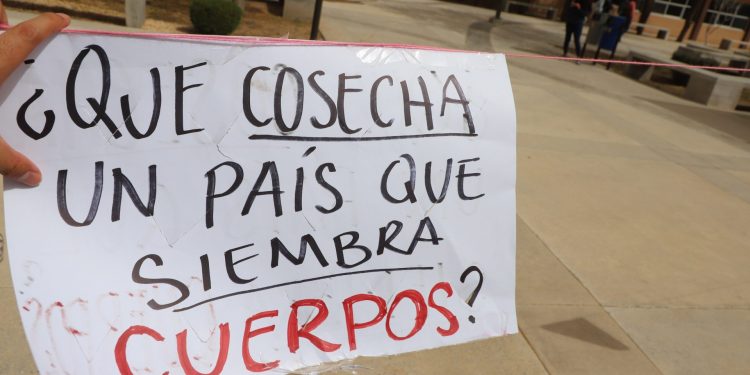 ¿QUE COSECHA
UN PAÍS QUE
SIEMBRA
CUERPOS?